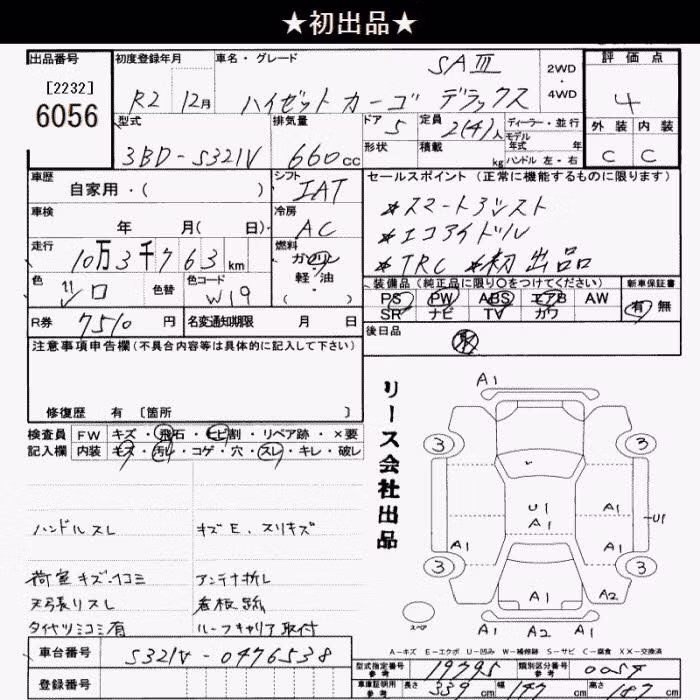 ★初出品★
出品番号
[2232]
6056
初度登録年月
R2 12月
車名・グレード
SAⅢ
ハイゼットカーゴ デラックス
2WD
・
4WD
評価点
4
外装 内装
C C
型式
3BD-S321V
排気量
660cc
ドア
5
定員
2(4)人
ディーラー・並行
モデル
年式 年
形状
積載
kg
ハンドル 左・右
車歴
自家用・( )
シフト
IAT
車検
年 月( 日)
冷房
AC
走行
10万3千763km
燃料
ガソリン
軽・油
( )
色
シロ
色替
色コード
W19
R券
7510円
名変通知期限 月 日
セールスポイント(正常に機能するものに限ります)
*スマートアシスト
*エコアイドル
*TRC *初出品
装備品(純正品に限り○をつけてください)
PS PW ABS エアB AW
SR ナビ TV カワ
新車保証書
有 無
後日品
取
注意事項申告欄(不具合内容等は具体的に記入して下さい)
修復歴 有 [箇所 ]
検査員 FW キズ・飛石・ヒビ割・リペア跡・×要
記入欄 内装 キズ・汚れ・コゲ・穴・スレ・キレ・破レ
ハンドルスレ キズE、スリキズ
荷室キズ、凹コミ アンテナ折レ
天張リスレ 看板跡
タイヤツミコミ有 ルーフキャリア取付
車台番号 S321V-0476538
登録番号
リース会社出品
A1
3 3
U1
A1
A1
U1
A1 A1
3 3
A1 A2
スペア
A1 A2 A1
A-キズ E-エクボ U-凹み W-補修跡 S-サビ C-腐食 XX-交換済
型式指定番号
参考
19795
類別区分番号
参考
車庫証明用
参考
長さ
339cm
幅
147cm
高さ
187cm